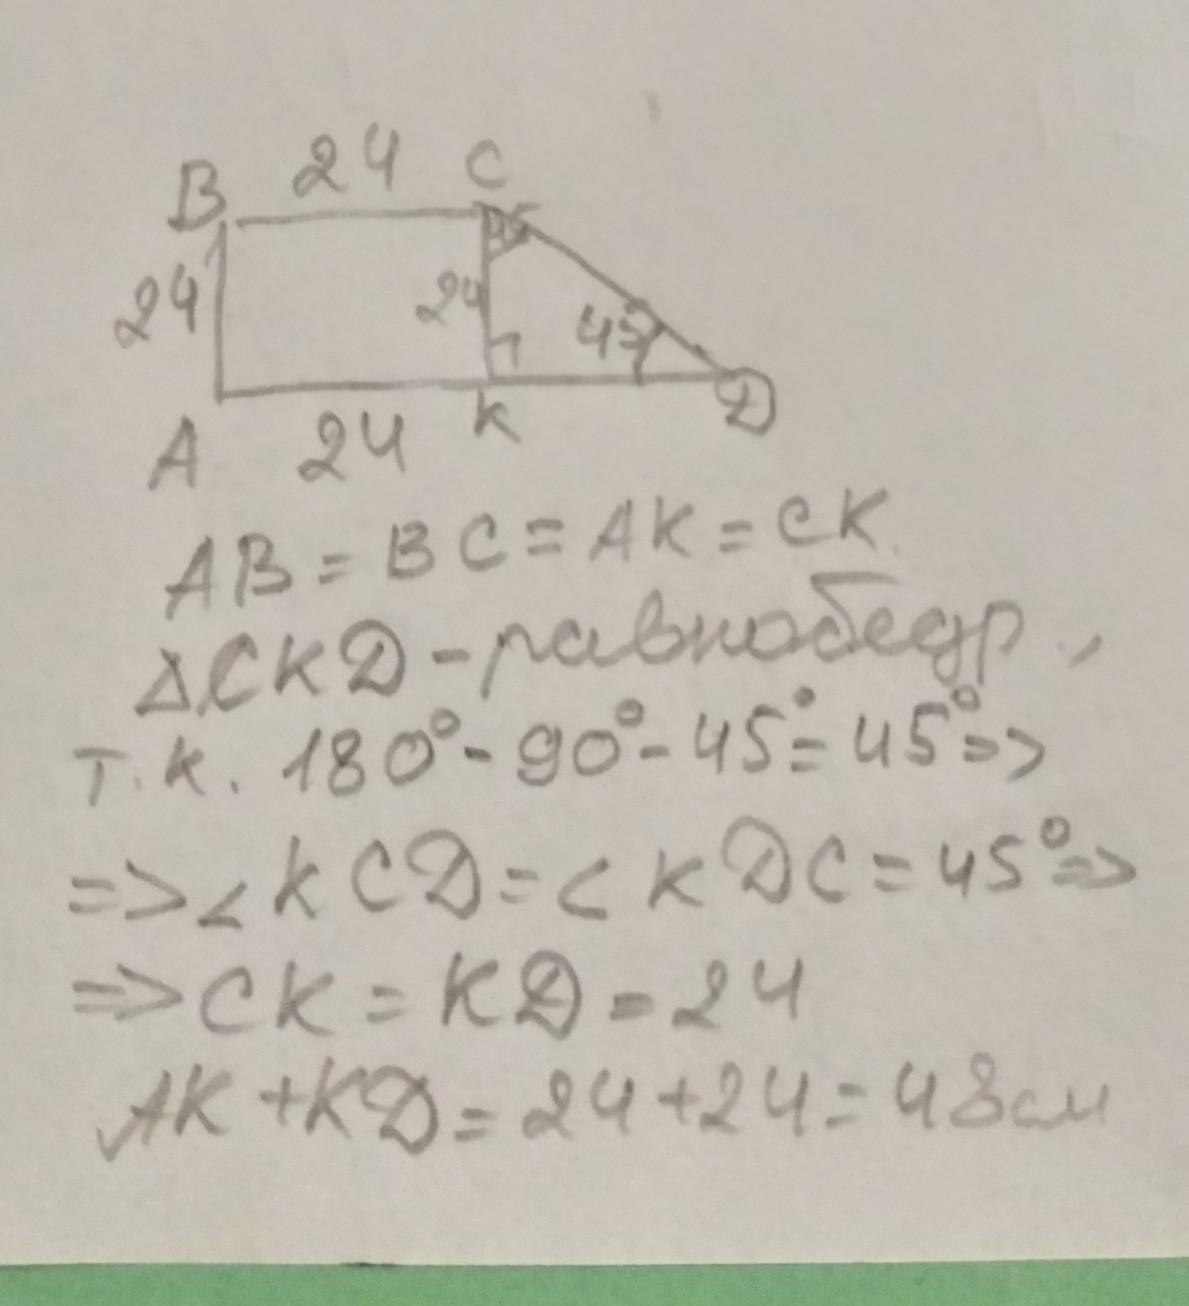 24 C
B
45
24
24
45
D
A 24 K
AB = BC = AK = CK.
△CKD - равнобедр.,
т.к. 180° - 90° - 45° = 45° =>
=> ∠KCD = ∠KDC = 45° =>
=> CK = KD = 24
AK + KD = 24 + 24 = 48 см